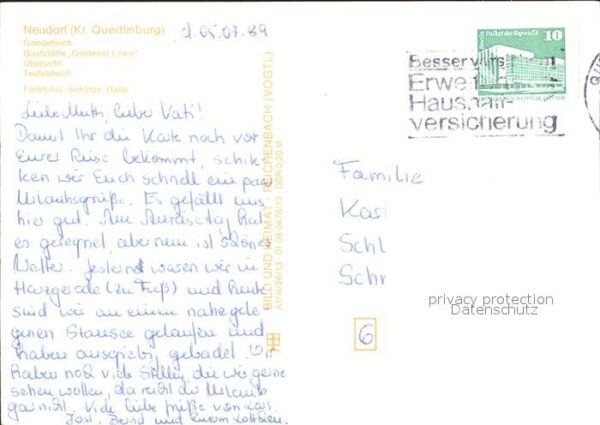 Neudorf (Kr. Quedlinburg)
d. 05.07.89
Gondelteich
Gaststätte „Goldener Löwe"
Übersicht
Teufelsteich
Farbfotos: Schütze, Halle
Liebe Mutti, lieber Vati!
Damit Ihr die Karte noch vor
Eurer Reise bekommt, schik-
ken wir Euch schnell ein paar
Urlaubsgrüße. Es gefällt uns
hier gut. Am Anreisetag hat
es geregnet, aber nun ist schönes
Wetter. Gestern waren wir in
Harzgerode (zu Fuß) und heute
sind wir an einem nahegele
genen Stausee gelaufen und
haben ausgiebig gebadet. Wir
haben noch viele Stellen, die wir gerne
sehen wollen, da reicht der Urlaub
gar nicht. Viele liebe Grüße von
und Eurem
BILD UND HEIMAT REICHENBACH (VOGTL)
A1/B/26/13 01 08 04 DDR 0,20 M
Berlin Palast der Republik
10
Besser
Erwe
Haus
versicherung
QU
Familie
Schl
Schr
6
privacy protection
Datenschutz